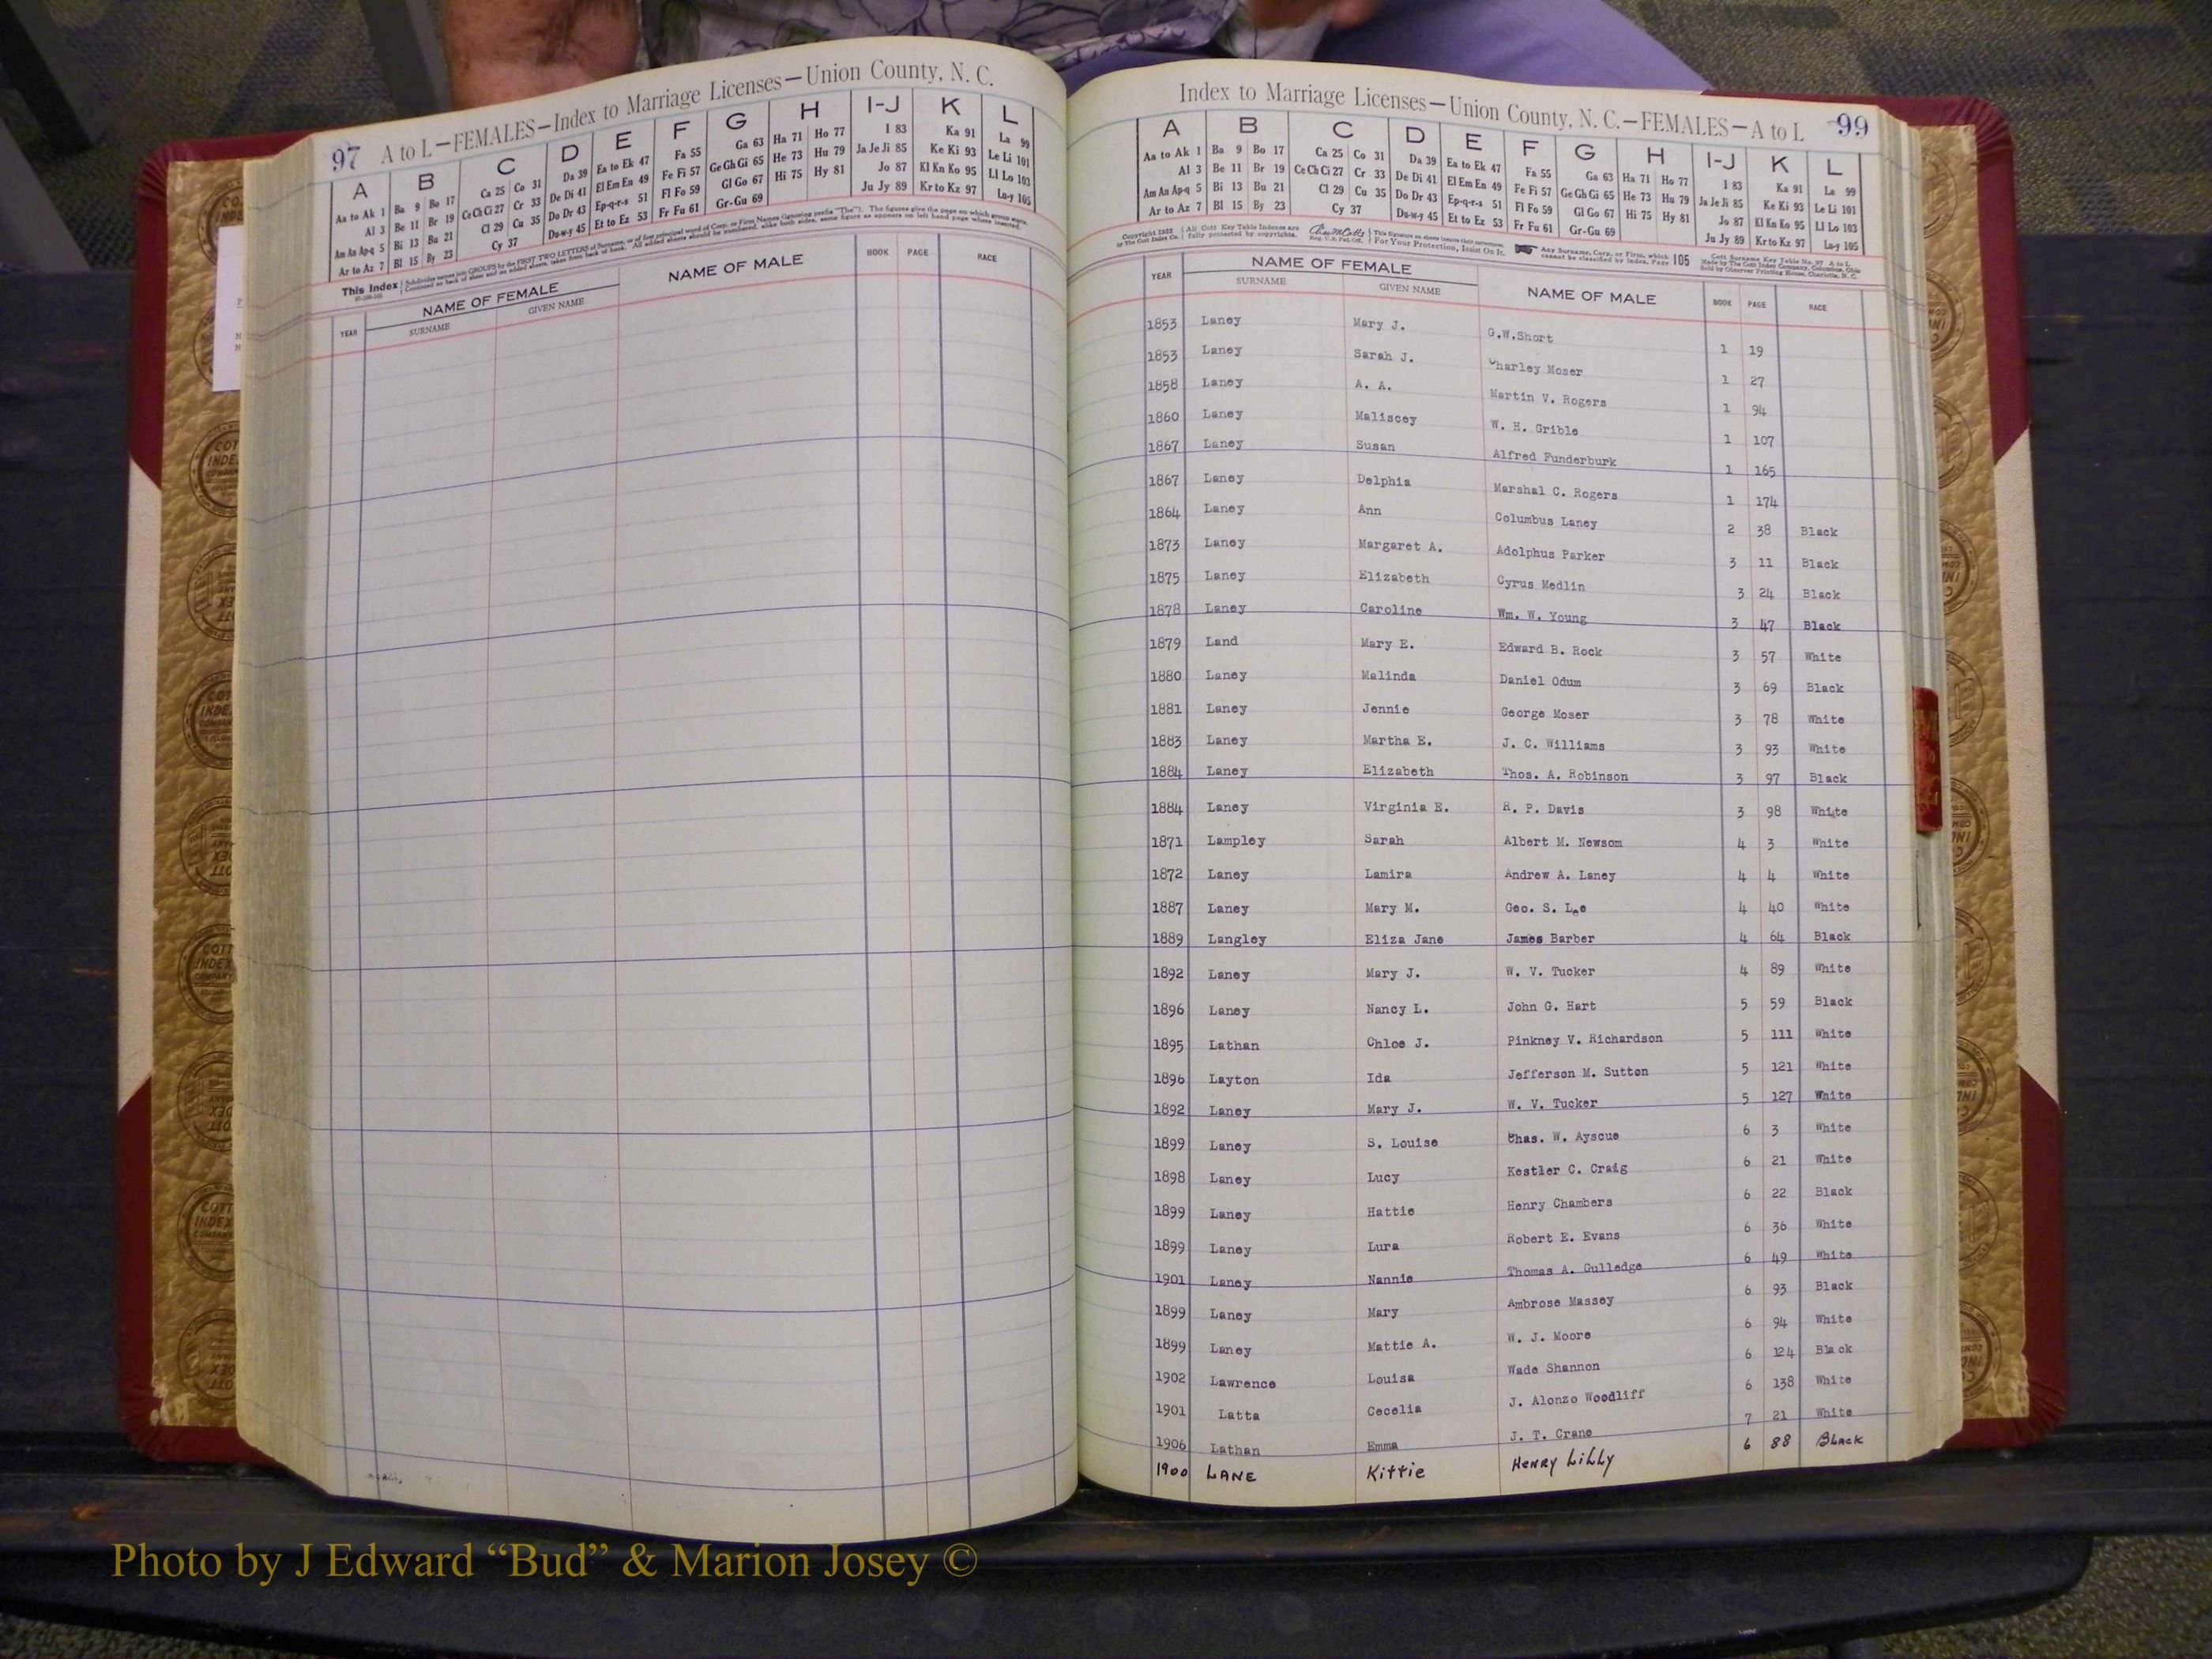 97 A to L—FEMALES—Index to Marriage Licenses—Union County, N. C.
A B C D E F G H I-J K L
Aa to Ak 1 Ba 9 Bo 17 Ca 25 Co 31 Da 39 Ea to Ek 47 Fa 55 Ga 63 Ha 71 Ho 77 I 83 Ka 91 La 99
Al 3 Be 11 Br 19 Ce Ch Ci 27 Cr 33 De Di 41 El Em En 49 Fe Fi 57 Ge Gh Gi 65 He 73 Hu 79 Ja Je Ji 85 Ke Ki 93 Le Li 101
Am An Ap-q 5 Bi 13 Bu 21 Cl 29 Cu 35 Do Dr 43 Ep-q-r-s 51 Fl Fo 59 Gl Go 67 Hi 75 Hy 81 Jo 87 Kl Kn Ko 95 Ll Lo 103
Ar to Az 7 Bl 15 By 23 Cy 37 Du-w-y 45 Et to Ez 53 Fr Fu 61 Gr-Gu 69 Ju Jy 89 Kr to Kz 97 Lu-y 105
This Index Subdivides names into GROUPS by the FIRST TWO LETTERS of Surname, or of first principal word of Corp. or Firm Names (Ignoring prefix "The"). The figures give the page on which group starts.
Continued on back of sheet and on added sheets, taken from back of book. All added sheets should be numbered, alike both sides, same figure as appears on left hand page where inserted.
YEAR NAME OF FEMALE NAME OF MALE BOOK PAGE RACE
SURNAME GIVEN NAME
Index to Marriage Licenses—Union County, N. C.—FEMALES—A to L 99
A B C D E F G H I-J K L
Aa to Ak 1 Ba 9 Bo 17 Ca 25 Co 31 Da 39 Ea to Ek 47 Fa 55 Ga 63 Ha 71 Ho 77 I 83 Ka 91 La 99
Al 3 Be 11 Br 19 Ce Ch Ci 27 Cr 33 De Di 41 El Em En 49 Fe Fi 57 Ge Gh Gi 65 He 73 Hu 79 Ja Je Ji 85 Ke Ki 93 Le Li 101
Am An Ap-q 5 Bi 13 Bu 21 Cl 29 Cu 35 Do Dr 43 Ep-q-r-s 51 Fl Fo 59 Gl Go 67 Hi 75 Hy 81 Jo 87 Kl Kn Ko 95 Ll Lo 103
Ar to Az 7 Bl 15 By 23 Cy 37 Du-w-y 45 Et to Ez 53 Fr Fu 61 Gr-Gu 69 Ju Jy 89 Kr to Kz 97 Lu-y 105
All Cott Key Table Indexes are fully protected by copyrights. For Your Protection, Insist On It. Any Surname, Corp. or Firm, which cannot be classified by Index, Page 105
YEAR NAME OF FEMALE NAME OF MALE BOOK PAGE RACE
SURNAME GIVEN NAME
1853 Laney Mary J. G.W.Short 1 19
1853 Laney Sarah J. Charley Moser 1 27
1858 Laney A. A. Martin V. Rogers 1 94
1860 Laney Maliscey W. H. Grible 1 107
1867 Laney Susan Alfred Funderburk 1 165
1867 Laney Delphia Marshal C. Rogers 1 174
1864 Laney Ann Columbus Laney 2 38 Black
1873 Laney Margaret A. Adolphus Parker 3 11 Black
1875 Laney Elizabeth Cyrus Medlin 3 24 Black
1878 Laney Caroline Wm. W. Young 3 47 Black
1879 Land Mary E. Edward B. Rock 3 57 White
1880 Laney Malinda Daniel Odum 3 69 Black
1881 Laney Jennie George Moser 3 78 White
1883 Laney Martha E. J. C. Williams 3 93 White
1884 Laney Elizabeth Thos. A. Robinson 3 97 Black
1884 Laney Virginia E. R. P. Davis 3 98 White
1871 Lampley Sarah Albert M. Newsom 4 3 White
1872 Laney Lamira Andrew A. Laney 4 4 White
1887 Laney Mary M. Geo. S. Lee 4 40 White
1889 Langley Eliza Jane James Barber 4 64 Black
1892 Laney Mary J. W. V. Tucker 4 89 White
1896 Laney Nancy L. John G. Hart 5 59 Black
1895 Lathan Chloe J. Pinkney V. Richardson 5 111 White
1896 Layton Ida Jefferson M. Sutton 5 121 White
1892 Laney Mary J. W. V. Tucker 5 127 White
1899 Laney S. Louise Chas. W. Ayscue 6 3 White
1898 Laney Lucy Kestler C. Craig 6 21 White
1899 Laney Hattie Henry Chambers 6 22 Black
1899 Laney Lura Robert E. Evans 6 36 White
1901 Laney Nannie Thomas A. Gulledge 6 49 White
1899 Laney Mary Ambrose Massey 6 93 Black
1899 Laney Mattie A. W. J. Moore 6 94 White
1902 Lawrence Louisa Wade Shannon 6 124 Black
1901 Latta Cecelia J. Alonzo Woodliff 6 138 White
1906 Lathan Emma J. T. Crane 7 21 White
1900 LANE Kittie HENRY LILLY 6 88 Black
Photo by J Edward “Bud” & Marion Josey ©